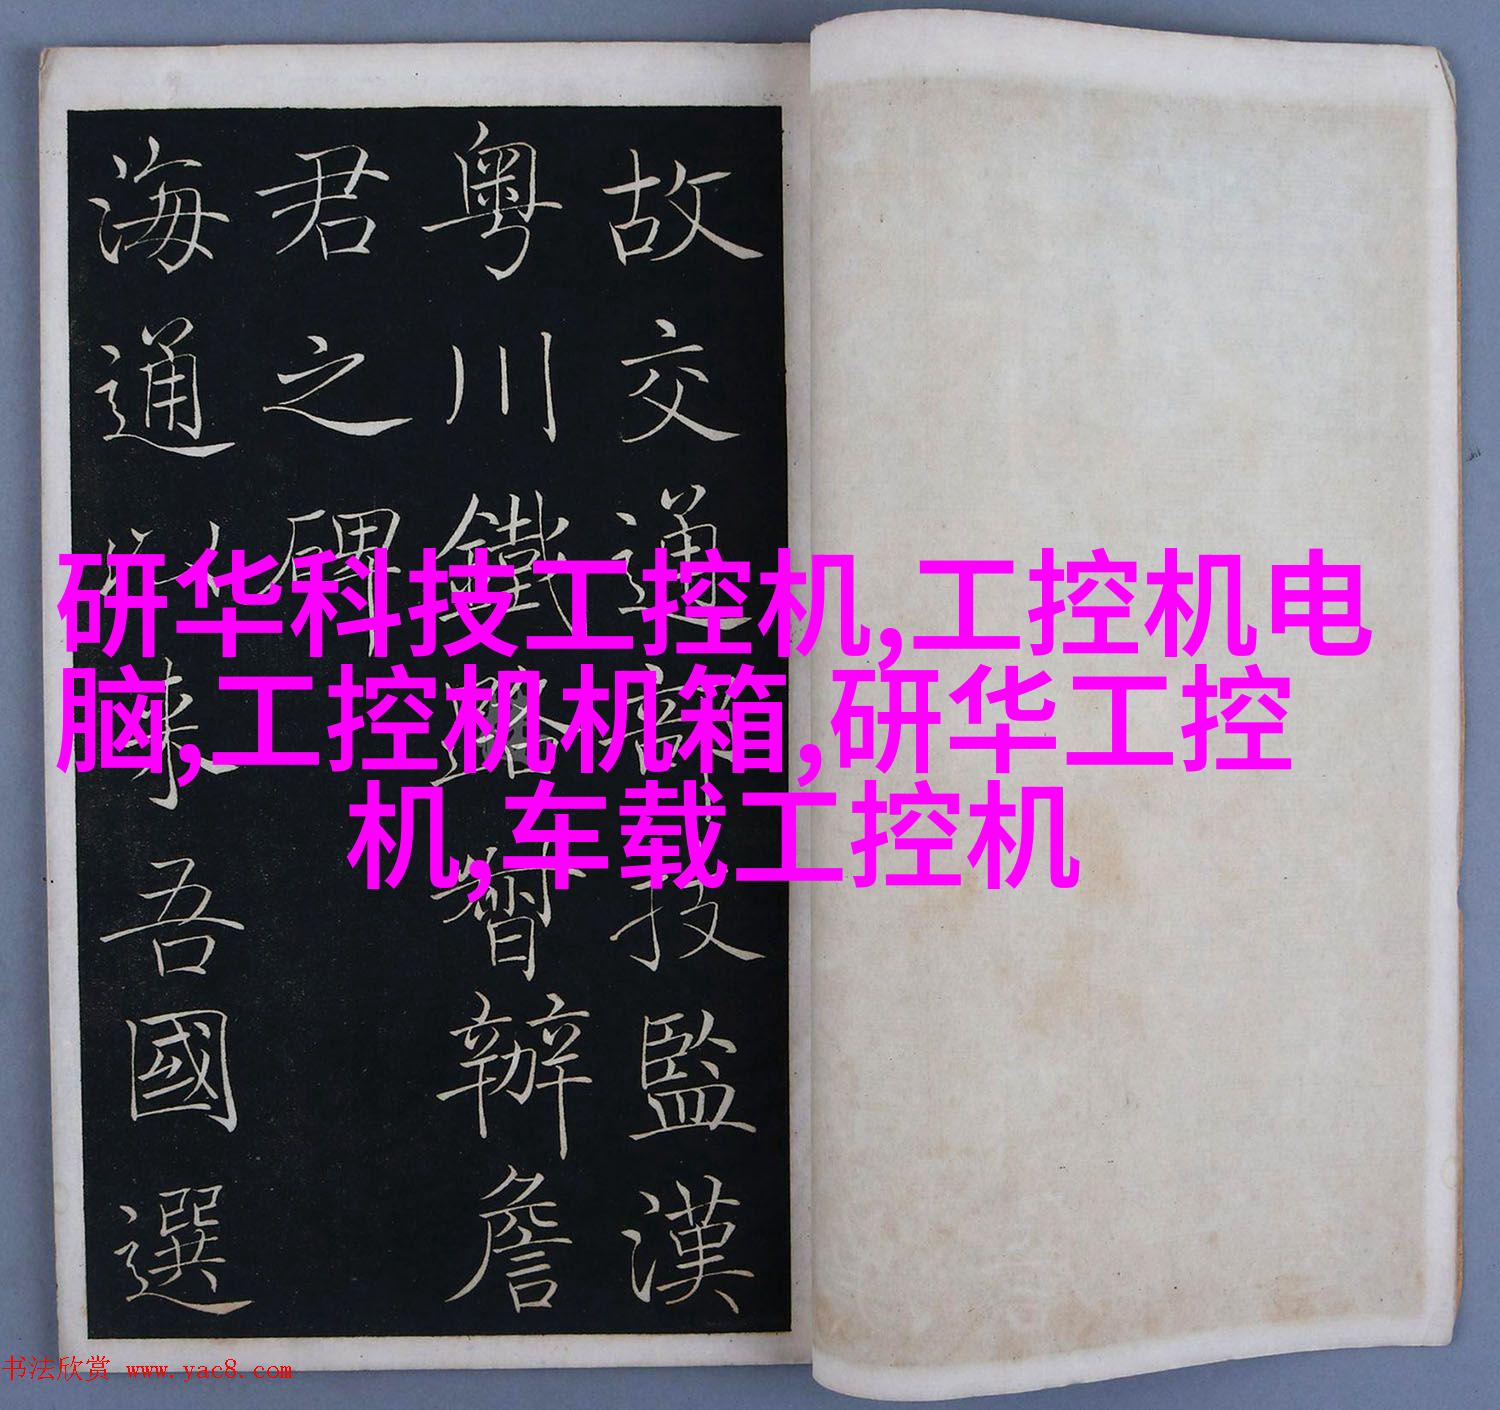 故交通部技監漢
粵川鐵路督辦詹
君之碑
海通以來吾國選
研华科技工控机,工控机电
脑,工控机机箱,研华工控
机,车载工控机
书法欣赏 www.yac8.com